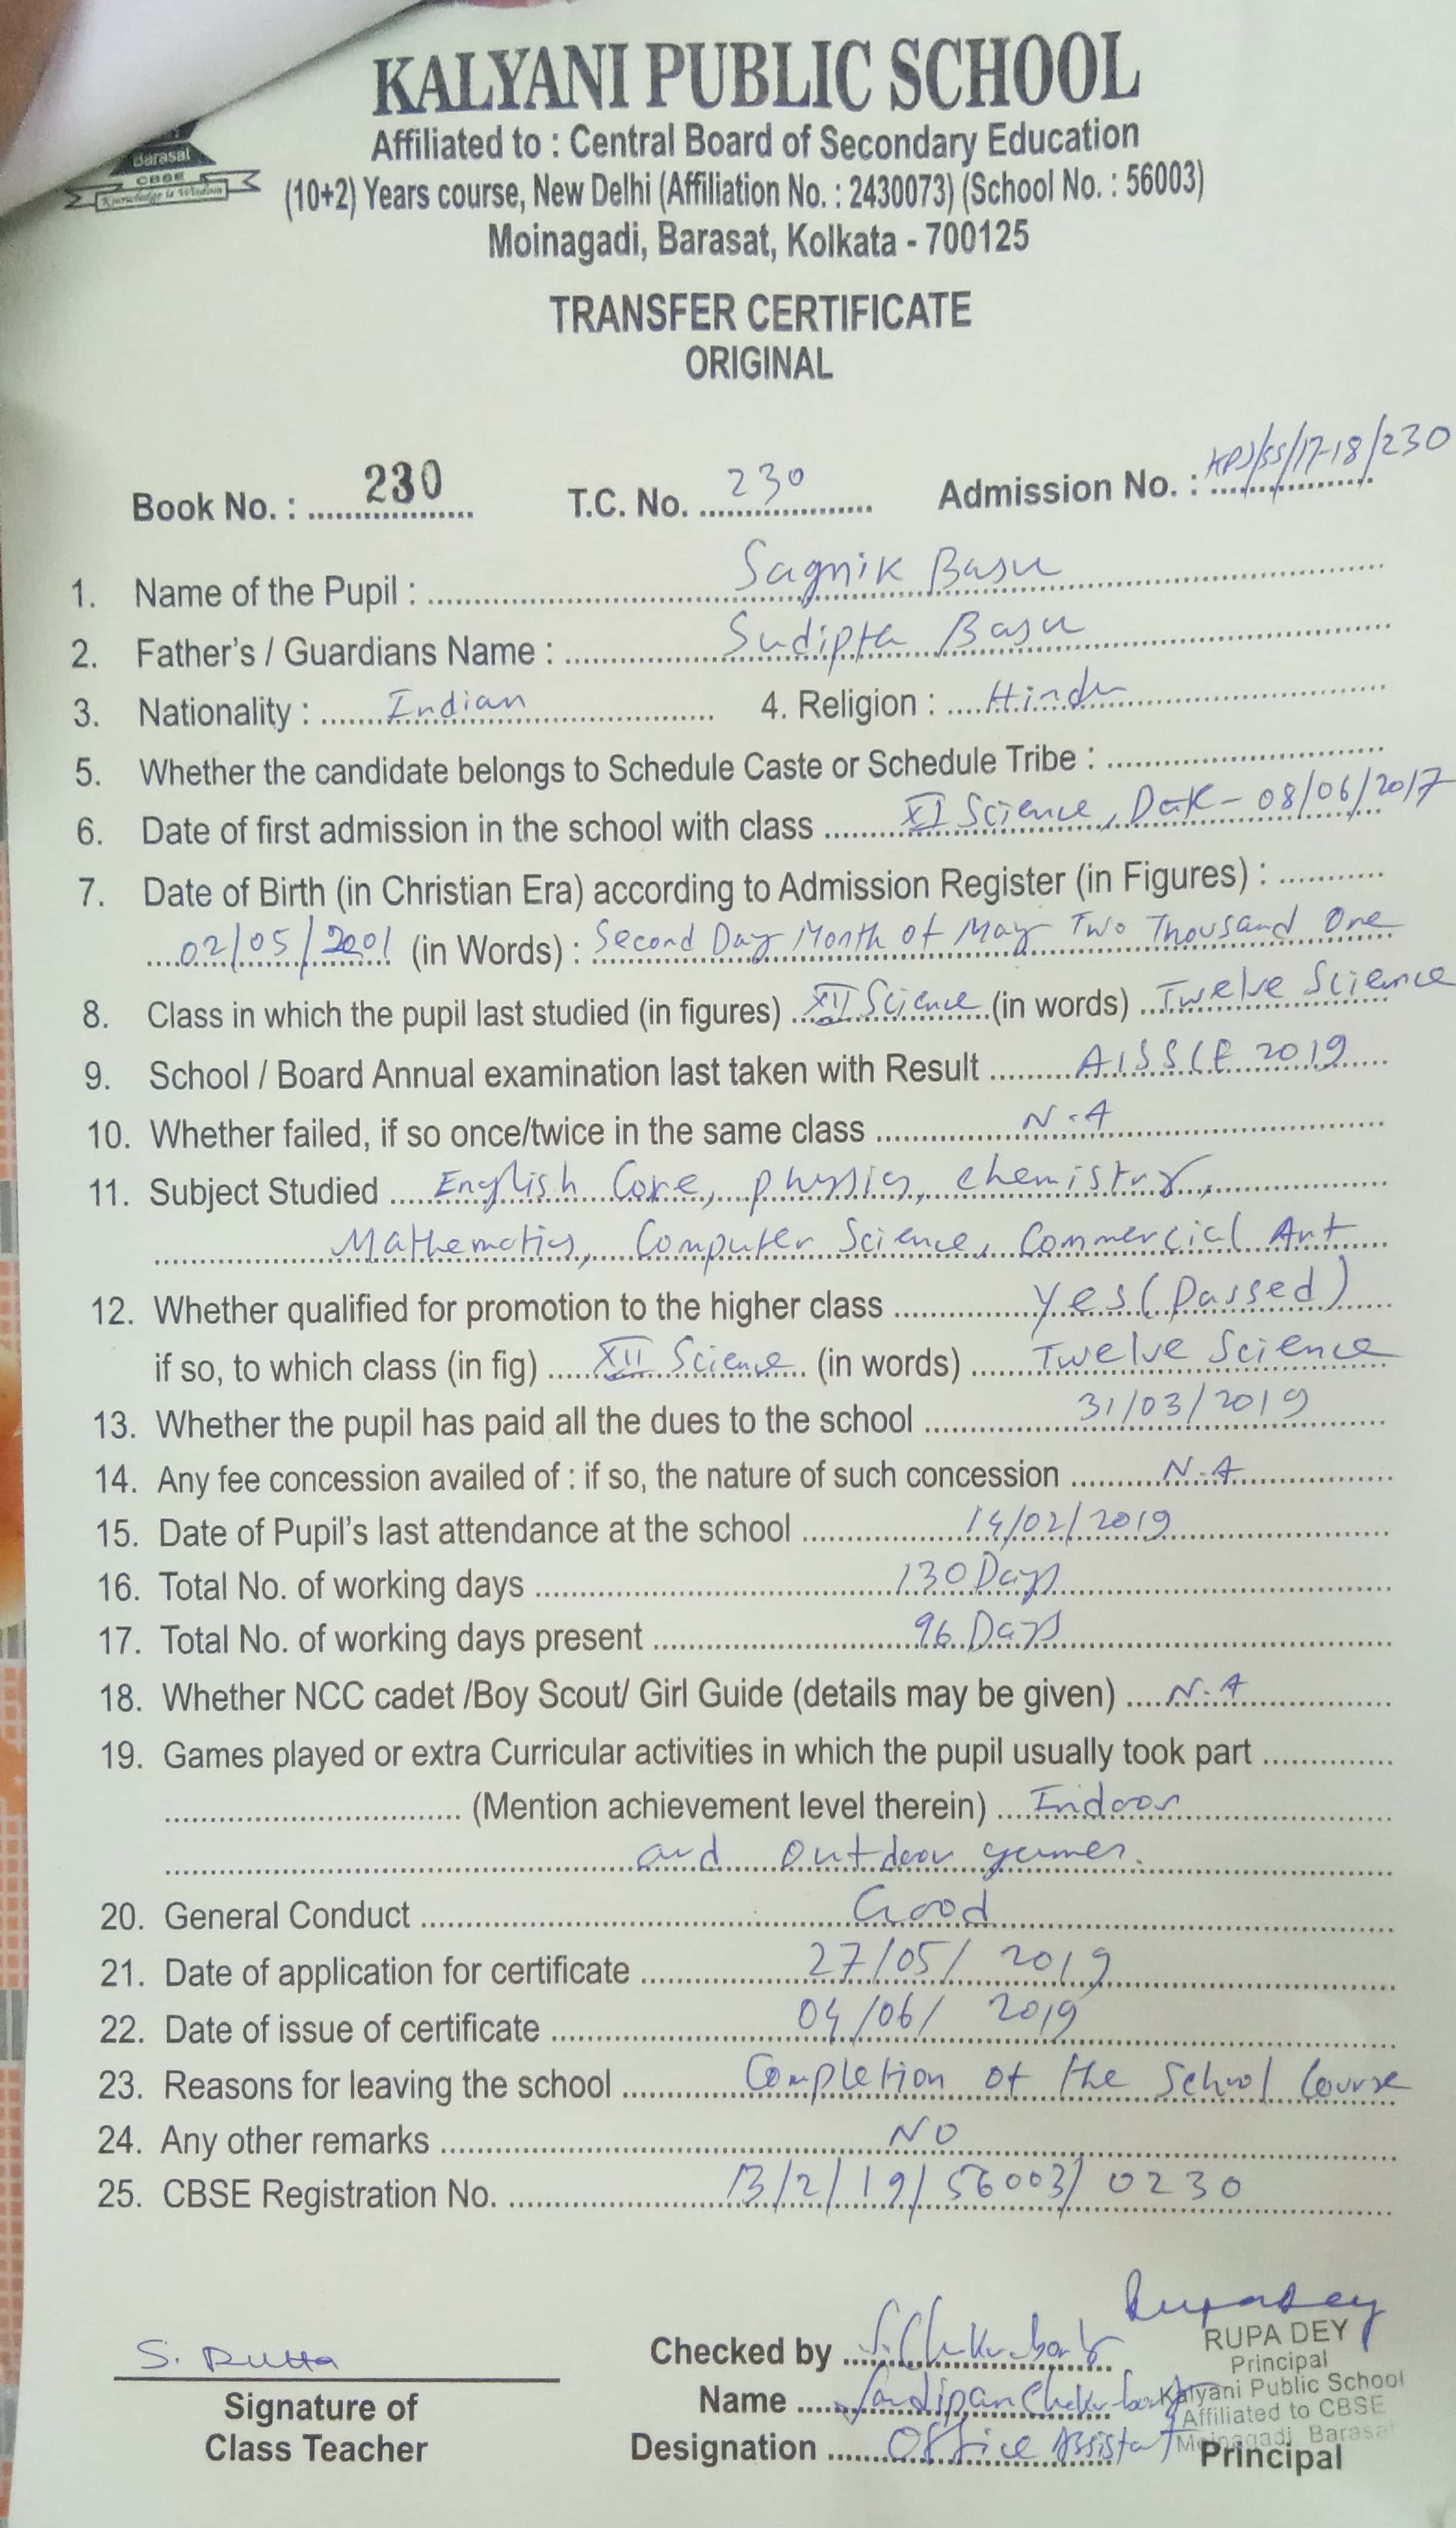 KALYANI PUBLIC SCHOOL
Barasat
CBSE
Knowledge is Wisdom
Affiliated to : Central Board of Secondary Education
(10+2) Years course, New Delhi (Affiliation No. : 2430073) (School No. : 56003)
Moinagadi, Barasat, Kolkata - 700125
TRANSFER CERTIFICATE
ORIGINAL
Book No. : 230 T.C. No. 230 Admission No. : KPS/SS/17-18/230
1. Name of the Pupil : Sagnik Basu
2. Father's / Guardians Name : Sudipta Basu
3. Nationality : Indian 4. Religion : Hindu
5. Whether the candidate belongs to Schedule Caste or Schedule Tribe :
6. Date of first admission in the school with class XI Science, Date - 08/06/2017
7. Date of Birth (in Christian Era) according to Admission Register (in Figures) :
02/05/2001 (in Words) : Second Day Month of May Two Thousand One
8. Class in which the pupil last studied (in figures) XII Science (in words) Twelve Science
9. School / Board Annual examination last taken with Result AISSCE 2019
10. Whether failed, if so once/twice in the same class N.A
11. Subject Studied English Core, Physics, Chemistry,
Mathematics, Computer Science, Commercial Art
12. Whether qualified for promotion to the higher class Yes (Passed)
if so, to which class (in fig) XII Science (in words) Twelve Science
13. Whether the pupil has paid all the dues to the school 31/03/2019
14. Any fee concession availed of : if so, the nature of such concession N.A
15. Date of Pupil's last attendance at the school 14/02/2019
16. Total No. of working days 130 Days
17. Total No. of working days present 96 Days
18. Whether NCC cadet /Boy Scout/ Girl Guide (details may be given) N.A
19. Games played or extra Curricular activities in which the pupil usually took part
(Mention achievement level therein) Indoor
and outdoor games.
20. General Conduct Good
21. Date of application for certificate 27/05/2019
22. Date of issue of certificate 04/06/2019
23. Reasons for leaving the school Completion of the School Course
24. Any other remarks NO
25. CBSE Registration No. B/2/19/56003/0230
Rupa Dey
S. Dutta Checked by S. Chakraborty RUPA DEY
Principal
Signature of Name Sandipan Chakraborty Kalyani Public School
Affiliated to CBSE
Class Teacher Designation Office Assistant Moinagadi, Barasat
Principal